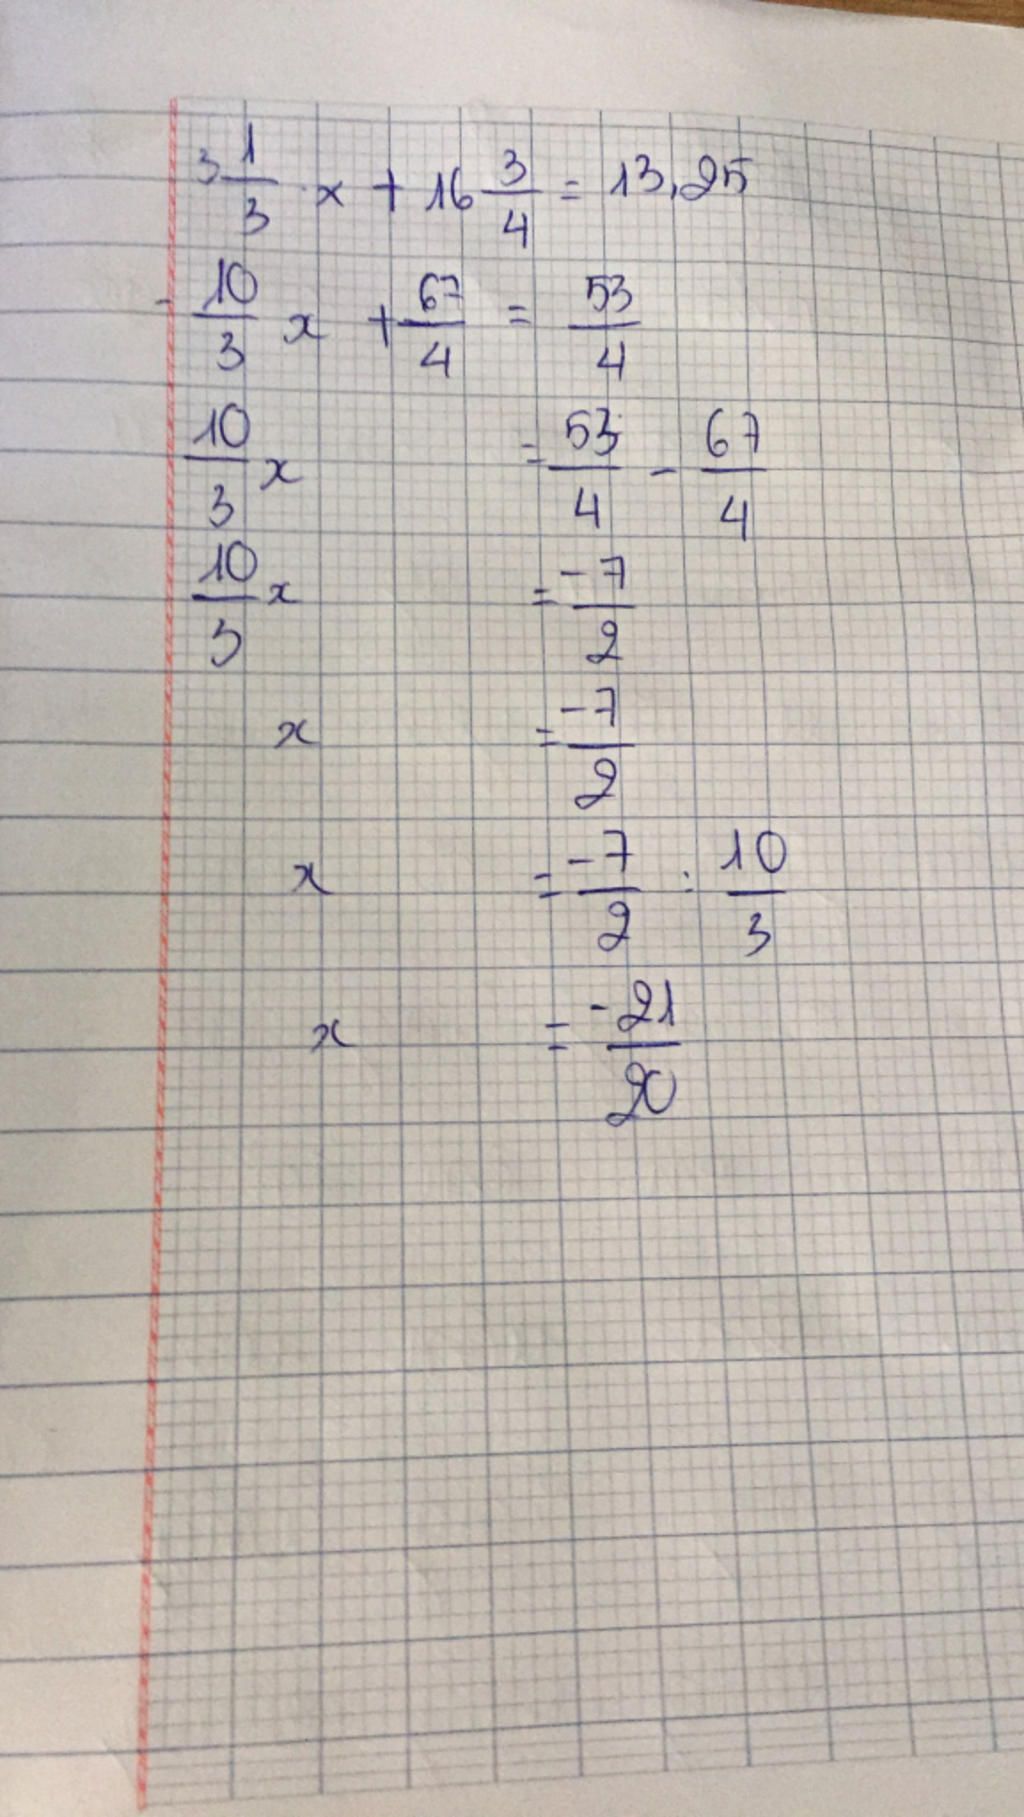 3 1/3 . x + 16 3/4 = 13,25
10/3 x + 67/4 = 53/4
10/3 x = 53/4 - 67/4
10/3 x = -7/2
x = -7/2
x = -7/2 : 10/3
x = -21/20